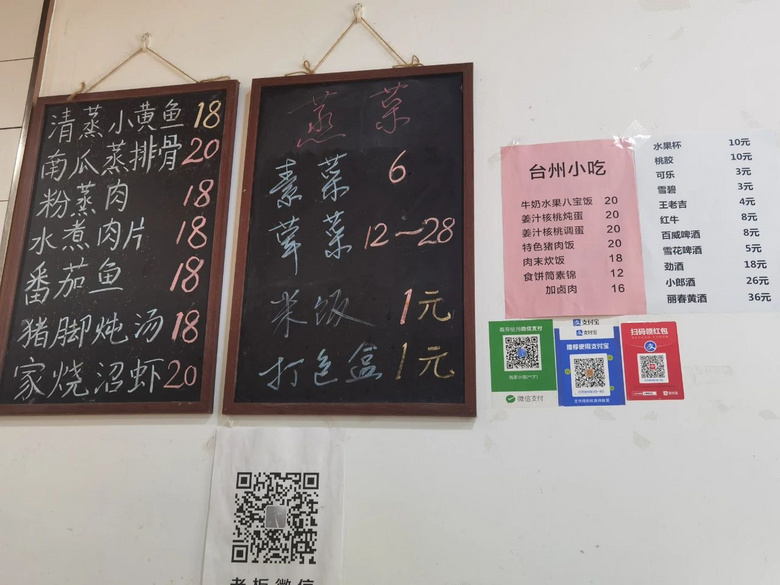 清蒸小黄鱼 18
南瓜蒸排骨 20
粉蒸肉 18
水煮肉片 18
番茄鱼 18
猪脚炖汤 18
家烧沼虾 20
蒸菜
素菜 6
荤菜 12-28
米饭 1元
打包盒 1元
台州小吃
牛奶水果八宝饭 20
姜汁核桃炖蛋 20
姜汁核桃调蛋 20
特色猪肉饭 20
肉末炊饭 18
食饼筒素锦 12
加卤肉 16
水果杯 10元
桃胶 10元
可乐 3元
雪碧 3元
王老吉 4元
红牛 8元
百威啤酒 8元
雪花啤酒 5元
劲酒 18元
小郎酒 26元
丽春黄酒 36元
推荐使用微信支付
微信支付
支付宝
推荐使用支付宝
扫码领红包
老板微信